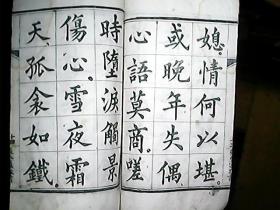 媳情何以堪
或晚年失偶
心語莫商蹉
時墮淚觸景
傷心雪夜霜
天孤衾如鐵